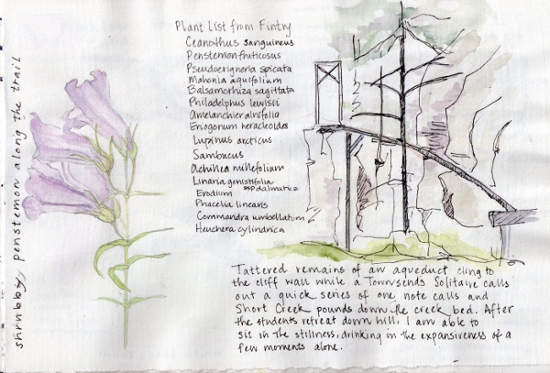 shrubby penstemon along the trail
Plant List from Fintry
Ceanothus sanguineus
Penstemon fruticosus
Pseudoerigneria spicata
Mahonia aquifolium
Balsamorhiza sagittata
Philadelphus lewisii
Amelanchier alnifolia
Eriogonum heracleoides
Lupinus arcticus
Sambucus
Achillea millefolium
Linaria genistifolia
ssp dalmatica
Erodium
Phacelia linearis
Commandra umbellatum
Heuchera cylindrica
Tattered remains of an aqueduct cling to
the cliff wall while a Townsends Solitaire calls
out a quick series of one note calls and
Short Creek pounds down the creek bed. After
the students retreat down hill, I am able to
sit in the stillness, drinking in the expansiveness of a
few moments alone.